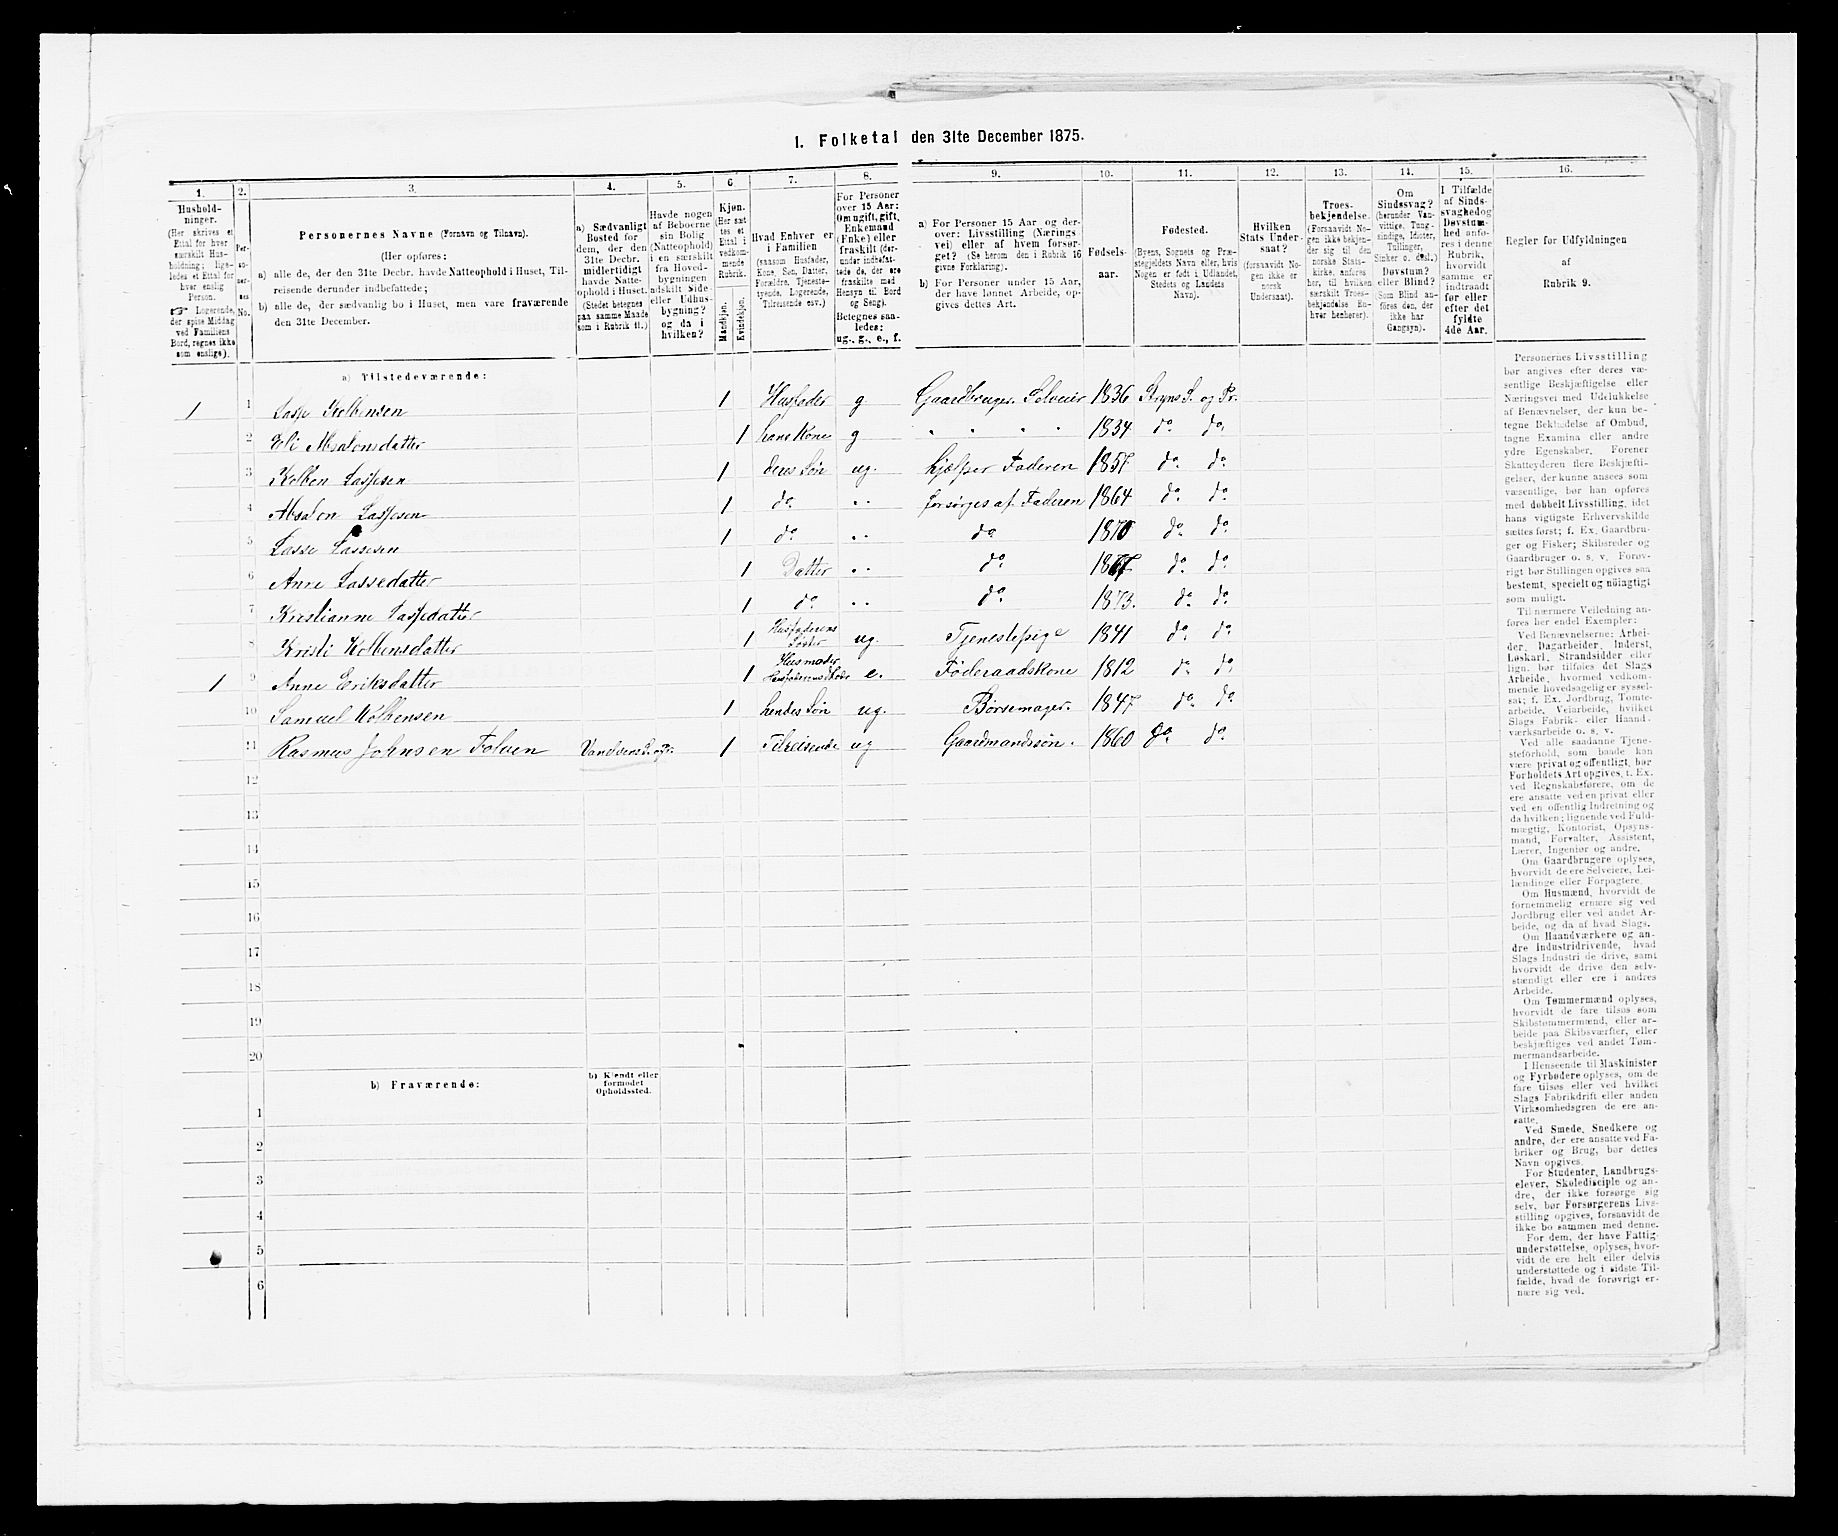 1. Folketal den 31te December 1875.
1. 2. 3. 4. 5. 6 7. 8. 9. 10. 11. 12. 13. 14. 15. 16.
Hushold-
ninger.
(Her skrives et
Ettal for hver
særskilt Hus-
holdning; lige-
ledes et Ettal for
hver enslig
Person.
☞ Logerende,
der spise Middag
ved Familiens
Bord, regnes ikke
som enslige).
Per-
so-
ner-
nes
No.
Personernes Navne (Fornavn og Tilnavn).
(Her opføres:
a) alle de, der den 31te Decbr. havde Natteophold i Huset, Til-
reisende derunder indbefattede;
b) alle de, der sædvanlig bo i Huset, men vare fraværende
den 31te December.
a) Sædvanligt
Bosted for
dem, der den
31te Decbr.
midlertidigt
havde Natte-
ophold i Huset.
(Stedet betegnes
paa samme Maade
som i Rubrik 11.)
Havde nogen
af Beboerne
sin Bolig
(Natteophold)
i en særskilt
fra Hoved-
bygningen
adskilt Side-
eller Udhus-
bygning?
og da i
hvilken?
Kjøn.
(Her sæt
tes et
Ettal i
vedkom-
mende
Rubrik.
Mandkjøn.
Kvindekjøn.
Hvad Enhver er
i Familien
(saasom Husfader,
Kone, Søn, Datter,
Forældre, Tjeneste-
tyende, Logerende,
Tilreisende osv.)
For Personer
over 15 Aar:
Om ugift, gift,
Enkemand
(Enke) eller
fraskilt (der-
under indbefat-
tede de, der ere
fraskilte med
Hensyn til Bord
og Seng).
Betegnes saa-
ledes:
ug., g., e., f.
a) For Personer 15 Aar og der-
over: Livsstilling (Nærings-
vei) eller af hvem forsør-
get? (Se herom den i Rubrik 16
givne Forklaring).
b) For Personer under 15 Aar,
der have lønnet Arbeide, op-
gives dettes Art.
Fødsels-
aar.
Fødested.
(Byens, Sognets og Præ-
stegjeldets Navn eller, hvis
Nogen er født i Udlandet,
Stedets og Landets
Navn).
Hvilken
Stats Under-
saat?
(forsaavidt No-
gen ikke er
norsk
Undersaat).
Troes-
bekjendelse.
(Forsaavidt No-
gen ikke bekjen-
der sig til den
norske Stats-
kirke, anføres
her, til hvilken
særskilt Troes-
bekjendelse En-
hver henhører).
Om
Sindssvag?
(herunder Van-
vittige, Tung-
sindige, Idioter,
Tullinger,
Sinker o. desl.)
Døvstum?
eller Blind?
(Som Blind an-
føres den, der
ikke har
Gangsyn).
I Tilfælde
af Sinds-
svaghed og
Døvstum-
hed anfø-
res i denne
Rubrik,
hvorvidt
samme er
indtraadt
før eller
efter det
fyldte
4de Aar.
Regler for Udfyldningen
af
Rubrik 9.
a) Tilstedeværende:
1 1 Lasse Kolbensen 1 Husfader g Gaardbruger. Selveier 1836 Stryns S. og Pr.
2 Eli Absalonsdatter 1 hans Kone g " " " " 1834 do. do.
3 Kolben Lassesen 1 deres Søn ug. hjælper Faderen 1857 do. do.
4 Absalon Lassesen 1 do. " " forsørges af Faderen 1864 do. do.
5 Lasse Lassesen 1 do. " " do 1870 do. do.
6 Anne Lassedatter 1 Datter " " do 1867. do. do.
7 Kristianne Lassedatter 1 do. " " do. 1873. do. do.
8 Kristi Kolbensdatter 1 Husfaderens Søster ug. Tjenestepige 1841 do. do.
1 9 Anne Eriksdatter 1 Husmoder Husfaderens Moder e. Føderaadskone 1812 do. do.
10 Samuel Kolbensen 1 hendes Søn ug. Børsemager. 1847. do. do.
11 Rasmus Johnsen Folven 1 Tilreisende ug Gaardmandssøn. 1860 do. do.
12
13
14
15
16
17
18
19
20
b) Fraværende:
b) Kjendt eller
formodet
Opholdssted.
1
2
3
4
5
6
Personernes Livsstilling
bør angives efter deres væ-
sentlige Beskjæftigelse eller
Næringsvei med Udelukkelse
af Benævnelser, der kun be-
tegne Beklædelse af Ombud,
tagne Examina eller andre
ydre Egenskaber. Forener
Skatteyderen flere Beskjæfti-
gelser, der kunne ansees som
væsentlige, bør han opføres
med dobbelt Livsstilling, idet
hans vigtigste Erhvervskilde
sættes først; f. Ex. Gaardbru-
ger og Fisker; Skibsreder og
Gaardbruger o. s. v. Forøv-
rigt bør Stillingen opgives saa
bestemt, specielt og nøiagtigt
som muligt.
Til nærmere Veiledning an-
føres her endel Exempler:
Ved Benævnelserne: Arbei-
der, Dagarbeider, Inderst,
Løskarl, Strandsidder eller
lign. bør tilføies det Slags
Arbeide, hvormed vedkom-
mende hovedsagelig er syssel-
sat; f. Ex. Jordbrug, Tomte-
arbeide, Veiarbeide, hvilket
Slags Fabrik- eller Haand-
værksarbeide o. s. v.
Ved alle saadanne Tjene-
steforhold, som baade kan
være privat og offentligt, bør
Forholdets Art opgives, t. Ex.
ved Regnskabsførere, om de
ere ansatte ved en privat eller
ved en offentlig Indretning og
da hvilken; lignende ved Fuld-
mægtig, Kontorist, Opsyns-
mand, Forvalter, Assistent,
Lærer, Ingeniør og andre.
Om Gaardbrugere oplyses,
hvorvidt de ere Selveiere, Lei-
lændinge eller Forpagtere.
Om Husmænd, hvorvidt de
fornemmelig ernære sig ved
Jordbrug eller ved andet Ar-
beide, og da af hvad Slags.
Om Haandværkere og an-
dre Industridrivende, hvad
Slags Industri de drive, samt
hvorvidt de drive den selv-
stændigt eller ere i andres
Arbeide.
Om Tømmermænd oplyses,
hvorvidt de fare tilsøs som
Skibstømmermænd, eller ar-
beide paa Skibsværfter, eller
beskjæftiges ved andet Tøm-
mermandsarbeide.
I Henseende til Maskinister
og Fyrbødere oplyses, om de
fare tilsøs eller ved hvilket
Slags Fabrikdrift eller anden
Virksomhedsgren de ere an-
satte.
Ved Smede, Snedkere og
andre, der ere ansatte ved Fa-
briker og Brug, bør dettes
Navn opgives.
For Studenter, Landbrugs-
elever, Skoledisciple og an-
dre, der ikke forsørge sig
selv, bør Forsørgerens Livs-
stilling opgives, forsaavidt de
ikke bo sammen med denne.
For dem, der have Fattig-
understøttelse, oplyses, hvor-
vidt de ere helt eller delvis
understøttede og i sidste Til-
fælde, hvad de forøvrigt er-
nære sig ved.